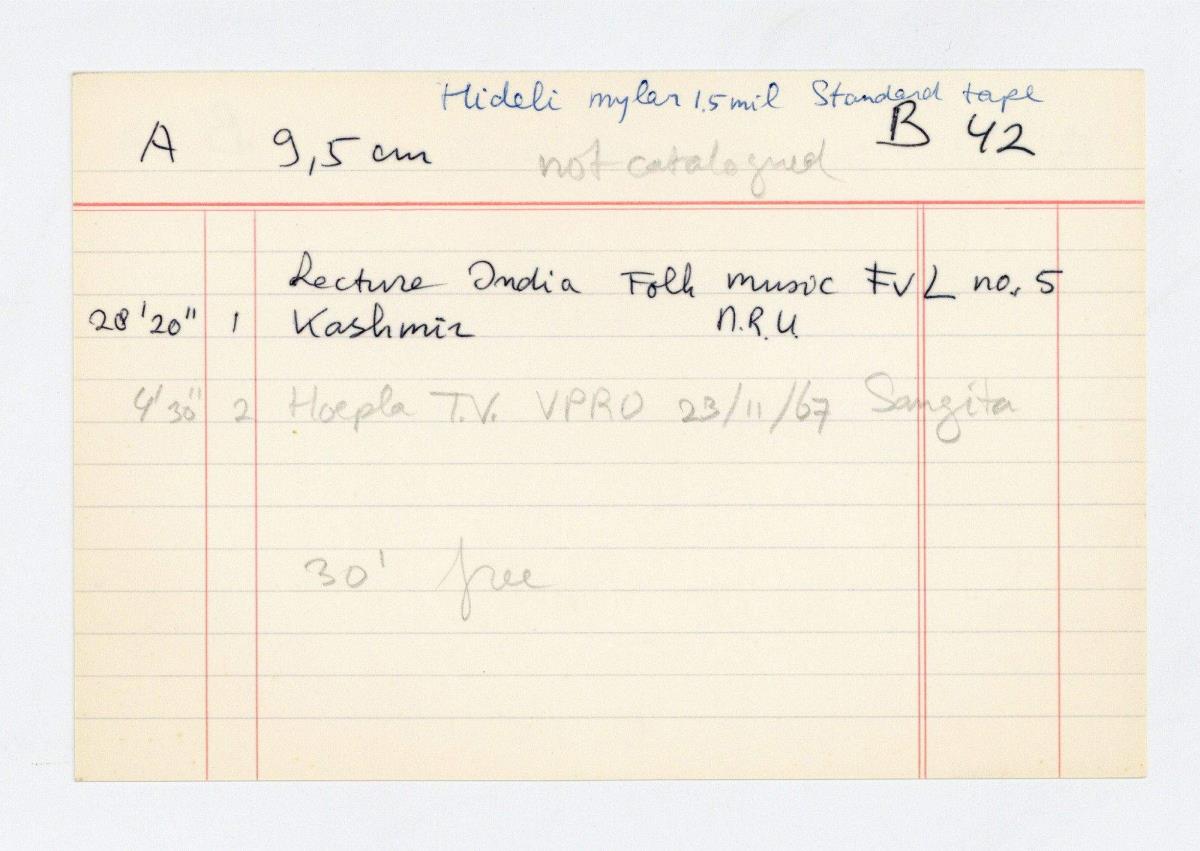 Hideli mylar 1.5 mil Standard tape
A 9,5 cm not catalogued B 42
Lecture India Folk music FvL no. 5
28'20" 1 Kashmir N.R.U.
4'30" 2 Hoepla T.V. VPRO 23/11/67 Sangita
30' free